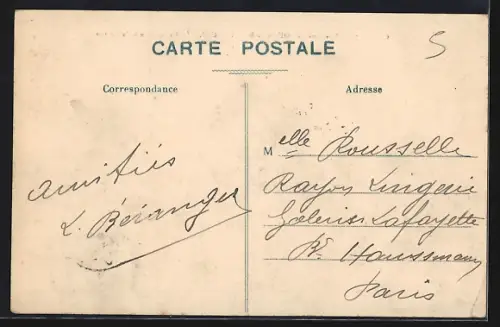 CARTE POSTALE
5
Correspondance
Adresse
Amitiés
L. Béranger
Melle Rousselle
Rayon Lingerie
Galeries Lafayette
Bd Haussmann
Paris